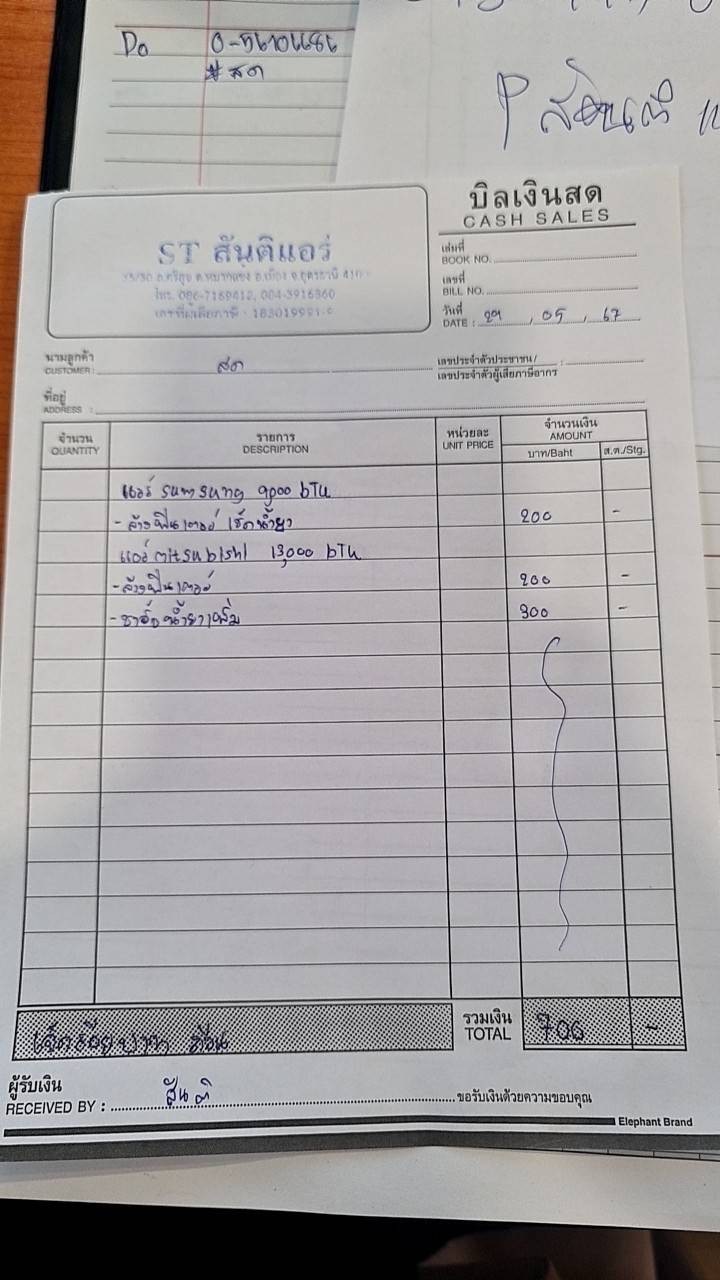 Do
#สด
P
บิลเงินสด
CASH SALES
ST สันติแอร์
เล่มที่
BOOK NO.
เลขที่
BILL NO.
วันที่
DATE : 29 , 05 , 67
นามลูกค้า
CUSTOMER : สด
เลขประจำตัวประชาชน/
เลขประจำตัวผู้เสียภาษีอากร :
ที่อยู่
ADDRESS :
จำนวน รายการ หน่วยละ จำนวนเงิน
QUANTITY DESCRIPTION UNIT PRICE AMOUNT
บาท/Baht ส.ต./Stg.
แอร์ Sumsung 9000 bTU
- ล้างฟิลเตอร์ เช็คน้ำยา 200 -
แอร์ mitsubishi 13,000 bTU
- ล้างฟิลเตอร์ 200 -
- ชาร์จน้ำยาเพิ่ม 300 -
รวมเงิน
TOTAL
เจ็ดร้อยบาท ถ้วน 700 -
ผู้รับเงิน
RECEIVED BY : สันติ ขอรับเงินด้วยความขอบคุณ
Elephant Brand